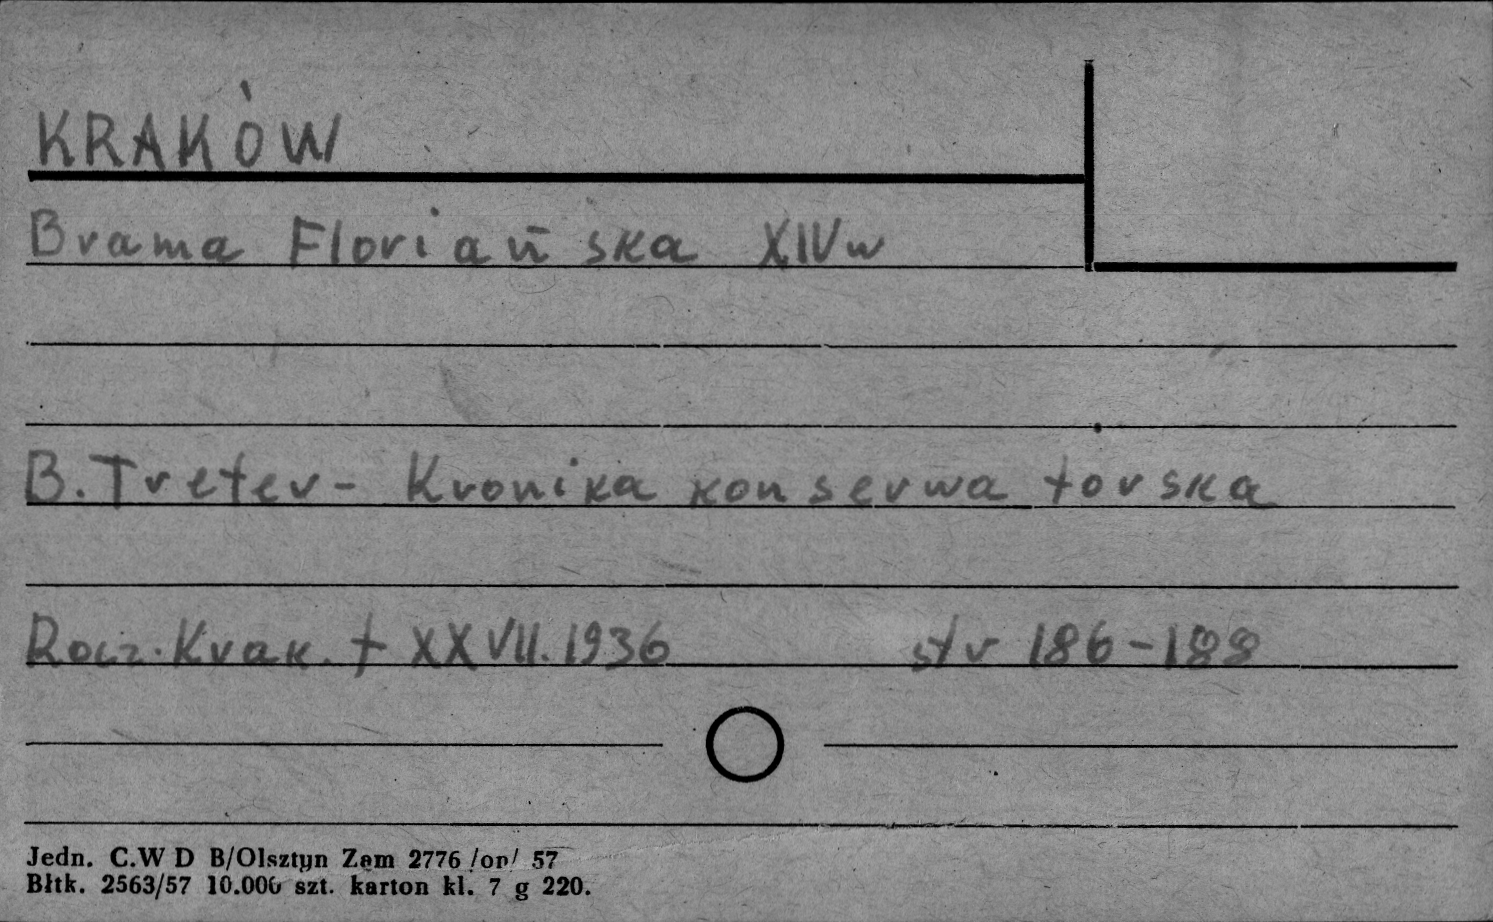 KRAKÓW
Brama Floriańska XIVw
B. Treter - Kronika konserwatorska
Rocz. Krak. t XXVII. 1936 str 186-188
Jedn. C.W D B/Olsztyn Zam 2776 /op/ 57
Błtk. 2563/57 10.000 szt. karton kl. 7 g 220.